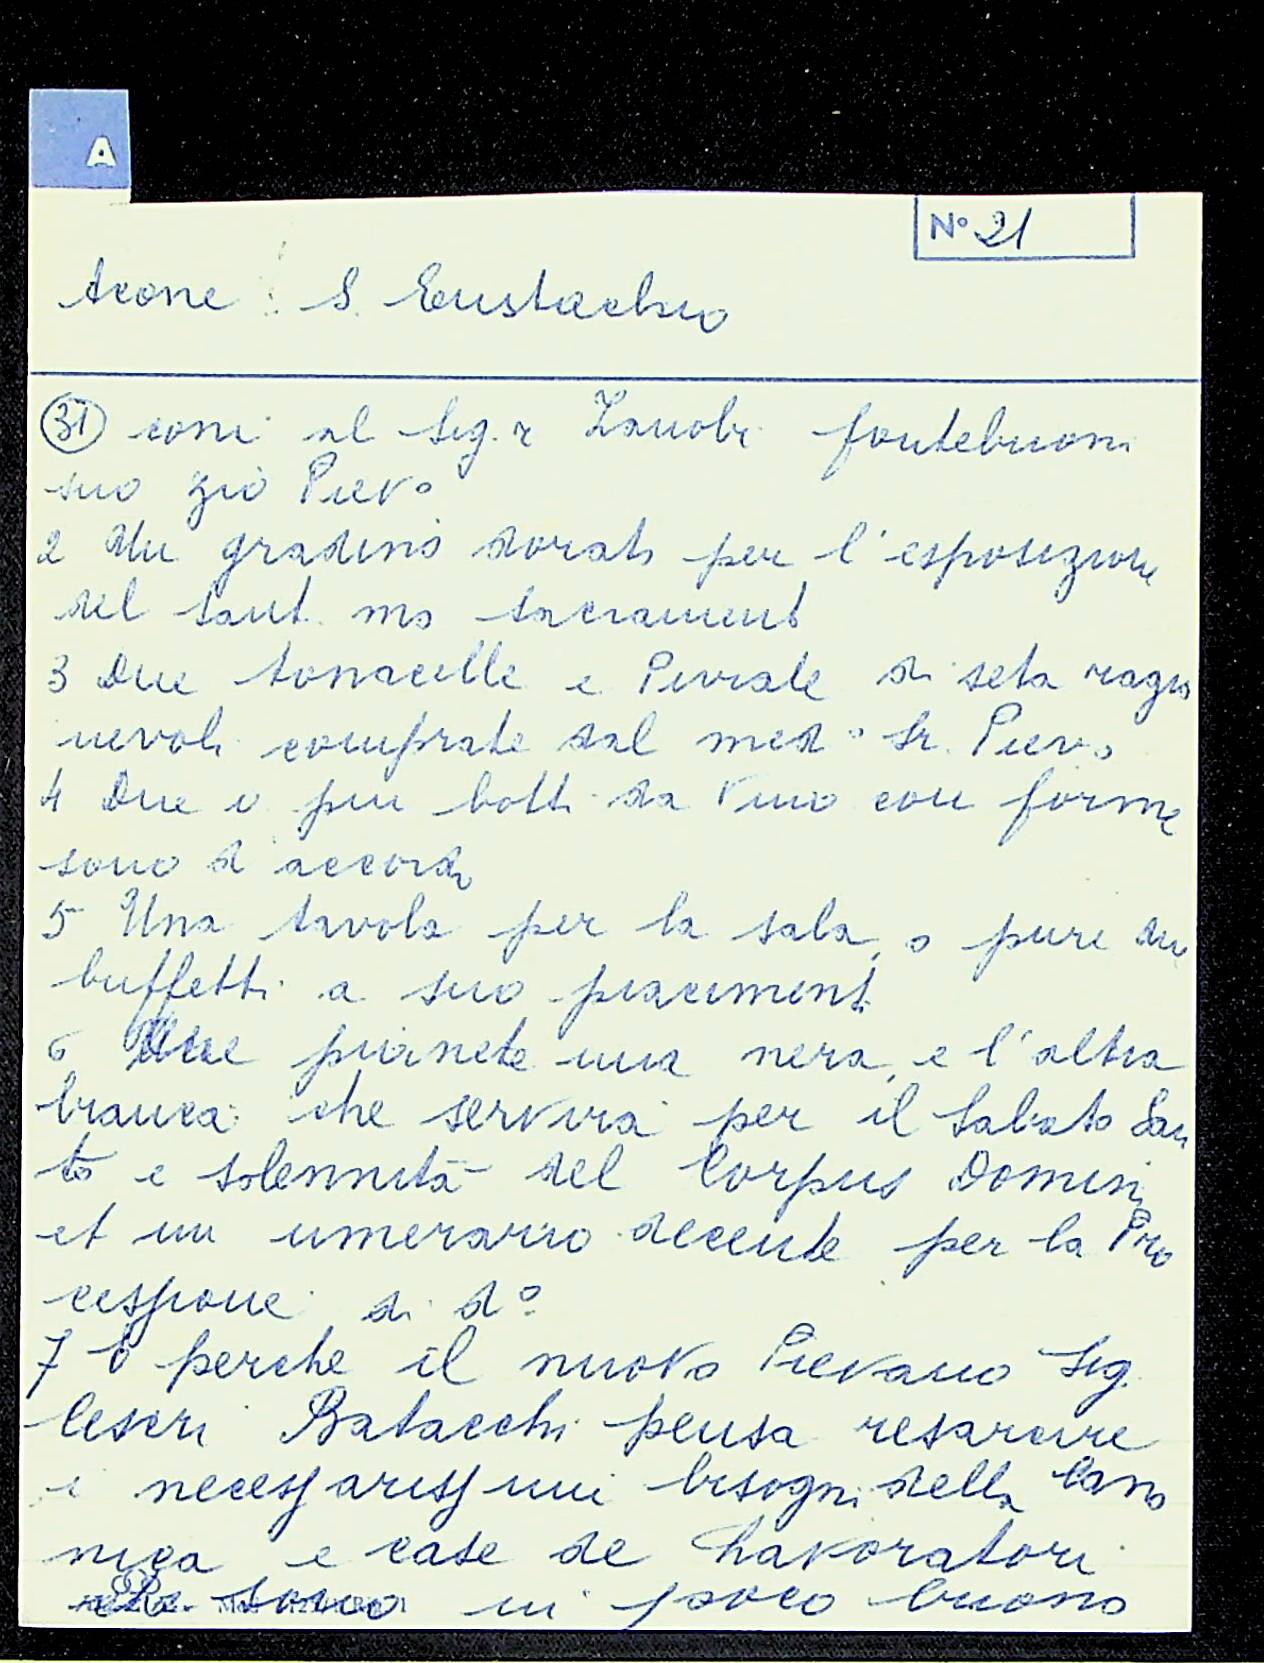 A
N° 21
Acone : S. Eustachio
31 coni al Sig.r Zanobi Fontebuoni
suo zio Piev°
2 Un gradino dorato per l'esposizione
del Sant.mo Sacramento
3 Due tonacelle e Piviale di seta ragio
nevoli comprate dal med° Sr. Piev°
4 Due o piu botti da vino con forme
sono d'accordo
5 Una tavola per la sala, o pure du
buffetti a suo piacimento
6 Due pianete una nera, e l'altra
bianca che servira per il Sabato San
to e solennità del Corpus Domini
et un umerario decente per la Pro
cessione di d°
7 E perche il nuovo Pievano Sig.
Ceseri Batacchi pensa resarcire
i necessarissimi bisogni della Cano
nica e case de Lavoratori
che sono in poco buono